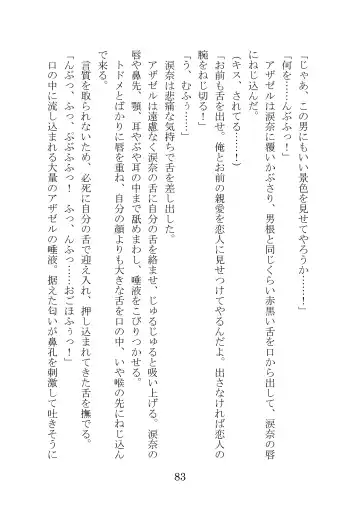 「じゃあ、この男にもいい景色を見せてやろうか……！」
「何を……んぶふっ！」
　アザゼルは涙奈に覆いかぶさり、男根と同じくらい赤黒い舌を口から出して、涙奈の唇
にねじ込んだ。
（キス、されてる……！）
「お前も舌を出せ。俺とお前の親愛を恋人に見せつけてやるんだよ。出さなければ恋人の
腕をねじ切る！」
「う、むふぅ……」
　涙奈は悲痛な気持ちで舌を差し出した。
　アザゼルは遠慮なく涙奈の舌に自分の舌を絡ませ、じゅるじゅると吸い上げる。涙奈の
唇や鼻先、顎、耳やぷや耳の中まで舐めまわし、唾液をこびりつかせる。
　トドメとばかりに唇を重ね、自分の顔よりも大きな舌を口の中、いや喉の先にねじ込ん
で来る。
　言質を取られないため、必死に自分の舌で迎え入れ、押し込まれてきた舌を撫でる。
「んぶっ、ふっ、ぷぷふふっ！　ふっ、んふっ……おごほふぅっ！」
　口の中に流し込まれる大量のアザゼルの唾液。据えた匂いが鼻孔を刺激して吐きそうに
83